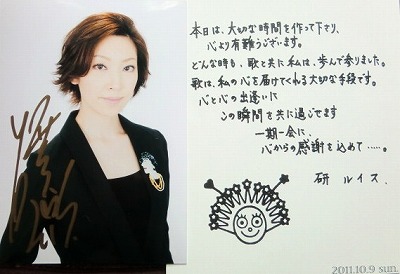 本日は、大切な時間を作って下さり、
心より有難うございます。
どんな時も、歌と共に私は、歩んで参りました。
歌は、私の心を届けてくれる大切な手段です。
心と心の出逢いに
この瞬間を共に過ごせます
一期一会に、
心からの感謝を込めて……。
研 ルイス
2011.10.9 sun.